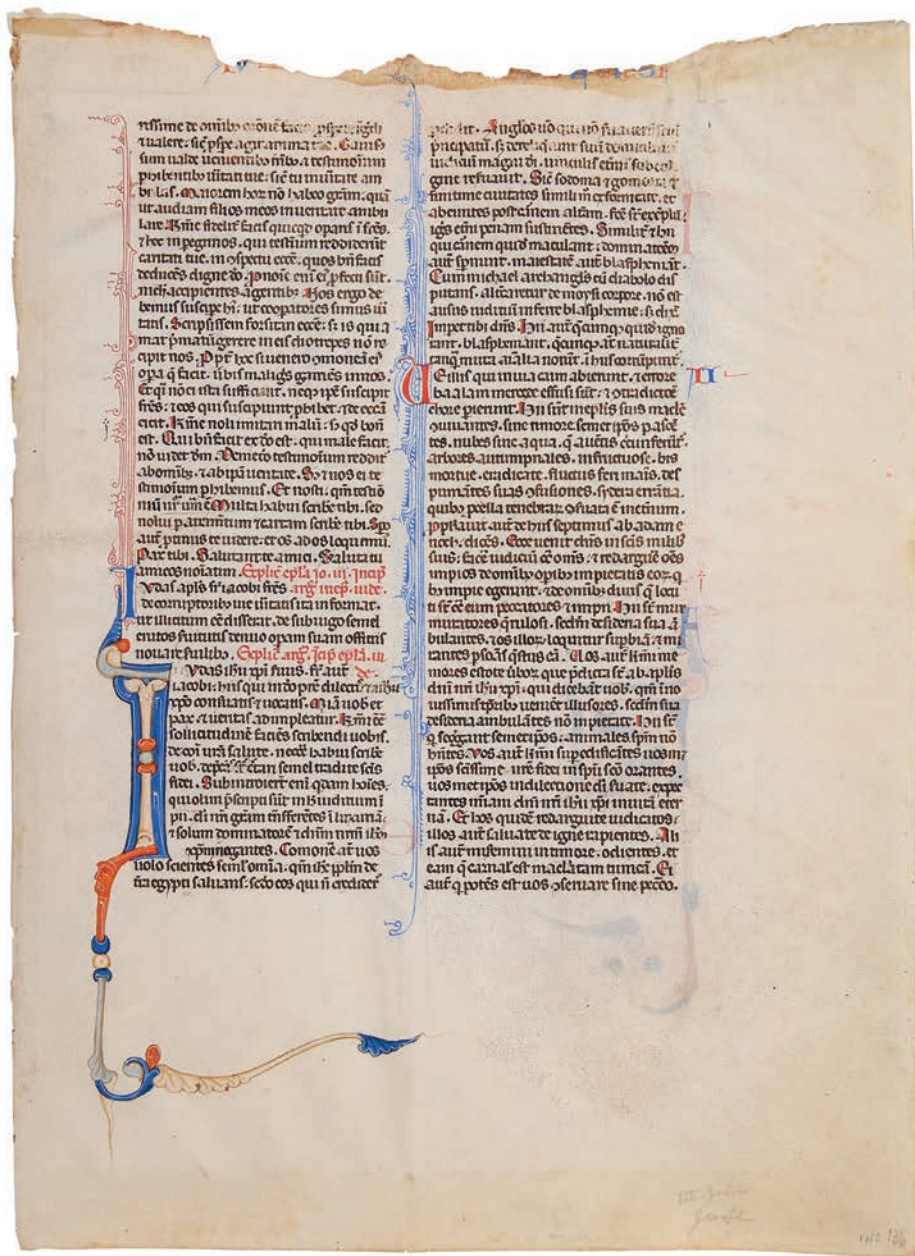 et ualere: sic̄ psp̄e agit anima
sum ualde uenientibꝫ fr̄ibꝫ ⁊ testimoīum
phibentibꝫ ūitati tue: sic̄ tu in ūitate am
bulas. Maiorem hoꝝ nō habeo gr̄am: quā
ut audiam filios meos in ueritate ambu
lare. Kr̄me fidelit̄ facis quicq̄d opans ī fr̄es.
⁊ hoc in peginos. qui testīum reddiderūt
caritati tue. in ꝯspectu ecc̄e. quos bn̄ facis
deducēs digne dō. ꝓ noīe enī eī pfecti sūt.
nichͥl accipientes a gentibꝫ. Nos ergo de
bemus suscipe hī: ut coopatores simus ūi
tatis. Scripsissem forsitan ecc̄e: sꝫ is qui a
mat p̄matū gerere in eis diotrepes nō re
cipit nos. Ppt̄ hoc si uenero ꝯmoneā eī
opa q̄ facit. ūbis malignis garriēs in nos.
Et q̄i nō eī ista sufficiant. neqꝫ ip̄e suscipit
fr̄es: ⁊ eos qui suscipiunt phibet. ⁊ de ecc̄a
eicit. Kr̄me noli imitari malū: sꝫ qd̄ bonū
est. Qui bn̄ facit ex dō est: qui male facit.
nō uidet dm̄. Demetrio testimoīum reddit̄
ab om̄ibꝫ. ⁊ ab ip̄a ueritate. Sꝫ ⁊ nos ei te
stimoīum phibemus. Et nosti. qm̄ testīo
niū nr̄um uerum ē. Multa habui scribe tibi. sed
nolui p atramentum ⁊ cartam scribe tibi. Spo
aūt ptinus te uidere: et os ad os loquemur.
Pax tibi. Salutant te amici. Saluta tu
amicos noīatim. Explic̄ ep̄la io. iij. Incip̄
Iudas apl̄s fr̄ iacobi fr̄es arḡ. incip̄. iude.
de corruptoribꝫ uie ūitatis ita informat.
ut illicitum ēē disserat. de sub iugo semel
erutos seruitutis denuo opam suam officiis
nouare seruilibꝫ. Explic̄ arḡ. Icip̄ ep̄la. iu
Iudas ih̄u xp̄i seruus. fr̄ aūt de.
iacobi: hiis qui in dō p̄re dilectis ⁊ xp̄o ih̄u
ꝯseruatis ⁊ uocatis. Mīa uob̄ et
pax ⁊ caritas adimpleatur. Kr̄mi ōēm
sollicitudinē faciēs scribendi uobis.
de cōī ur̄a salute. necc̄e habui scribe
uob̄. depcās sup̄ c̄tari semel tradite sc̄is
fidei. Subintroier̄t enī qdam hoīes.
qui olim p̄scripti sūt in h̄ iudiciū im
pii. dī nr̄i gr̄am tn̄sferētes ī luxuriā:
⁊ solum dominatorē ⁊ dn̄m nr̄m ih̄m
xp̄m negantes. Comonē aūt uos
uolo scientes semel om̄ia. qm̄ ih̄c pplm̄ de
tr̄a egypti saluans: scdo eos qui n̄ credider̄t
perdidit. Angelos ūo qui nō seruauer̄t suū
p̄ncipatū. sꝫ dereliq̄runt suū domiciliū
in iudiciū magni di. uinculis et̄nis sub cali
gine reseruauit. Sic̄ sodoma ⁊ gomorra ⁊
finitime ciuitates simili mͦ exfornicate. et
abeuntes post carnem altam. fc̄e sr̄ exēplū.
ignis et̄ni penam sustinētes. Similit̄ ⁊ hii
qui carnem quid̄ maculant: dominatōēm
aūt spernunt. maiestatē aūt blasphemāt.
Cum michael archangl̄s cū diabolo dis
putans. alt̄caretur de moysi corpore. nō est
ausus iudiciū inferre blasphemie: sꝫ dixit.
Impet tibi dn̄s. Hii aūt q̄cumqꝫ quid̄ igno
rant. blasphemant. q̄cumqꝫ aūt naturalit̄
tanq̄ muta aīalia norūt. ī hiis corrūpunt̄.
Ue illis qui in uia caim abierunt. ⁊ errore II
balaam mercede effusi sūt: ⁊ ꝯtradictōē
chore pierunt. Hii sūt in eplis suis macl̄e
ꝯuiuantes. sine timore semet ip̄os pascē
tes. nubes sine aqua. q̄ a uētis circūferūt̄.
arbores autumpnales. infructuose. bis
mortue. eradicate. fluctus feri maris. des
pumātes suas ꝯfusiones. sydera errātia.
quibꝫ pcella tenebraꝝ ꝯseruata ē in et̄num.
Pph̄auit aūt de hiis septimus ab adam e
noch. dicēs. Ecce uenit dn̄s in sc̄is milibꝫ
suis: facē iudiciū ꝯͣ om̄s. ⁊ redarguē om̄s
impios de om̄ibꝫ opibꝫ impietatis eoꝝ. q̄
bꝫ impie egerunt. ⁊ de om̄ibꝫ duris q̄ locu
ti sr̄ ꝯͣ eum peccatores ⁊ impii. Hii sr̄ mur
muratores q̄rulosi. scdm̄ desideria sua ā
bulantes. ⁊ os illoꝝ loquitur supbiā ⁊ mi
rantes psonas q̄stus cā. Uos aūt kr̄mi me
mores estote ūboꝝ que p̄dicta sr̄ ab apl̄is
dn̄i nr̄i ih̄u xp̄i: qui dicebāt uob̄. qm̄ ī no
uissimis tp̄ribꝫ ueniēt illusores. scdm̄ sua
desideria ambulātes nō in pietate. Hii sr̄
q̄ segregant semet ip̄os: animales. sp̄m nō
hn̄tes. Uos aūt kr̄mi supedificātes uosm̄
ip̄os sc̄issime ur̄e fidei in sp̄u sc̄o orantes.
uos met ip̄os in dilectione di seruate. expec
tantes mīam dn̄i nr̄i ih̄u xp̄i in uitā eter
nā. Et hos quidē redarguite iudicatos:
illos aūt saluate de igne rapientes. Ali
is aūt misemini in timore: odientes. et
eam q̄ carnal̄ est maculatam tunicā. Ei
aūt q̄ potēs est uos ꝯseruare sine pecc̄o.
III John
Jude